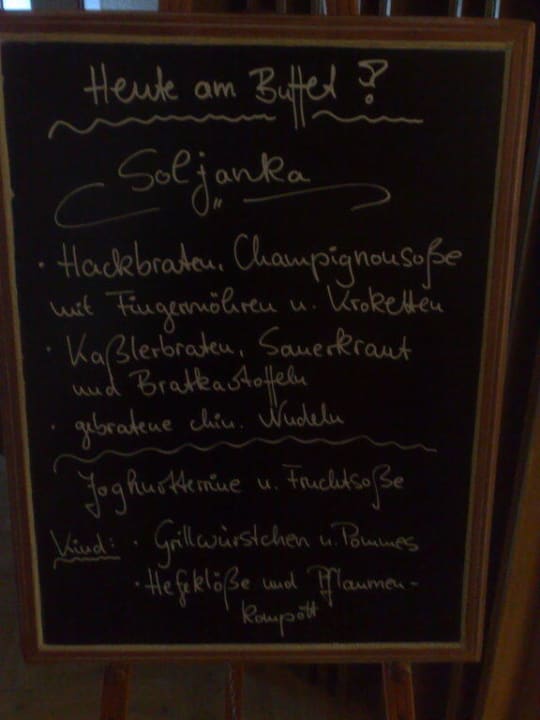 Heute am Buffet ?
Soljanka
"
· Hackbraten, Champignonsoße
mit Fingermöhren u. Kroketten
· Kaßlerbraten, Sauerkraut
und Bratkartoffeln
· gebratene chin. Nudeln
Joghurtterrine u. Fruchtsoße
Kind: · Grillwürstchen u. Pommes
· Hefeklöße und Pflaumen-
kompott